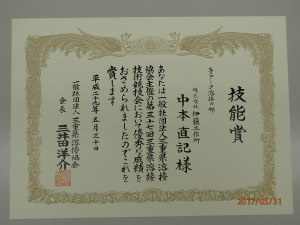 技能賞
手アーク溶接の部
株式会社 伊藤工作所
中本直記様
あなたは一般社団法人三重県溶接
協会主催第三十七回三重県溶接
技術競技会において優秀な成績を
おさめられましたのでこれを
賞します
平成二十九年五月三十日
一般社団法人三重県溶接協会
会長 三井田洋介
2017/05/31